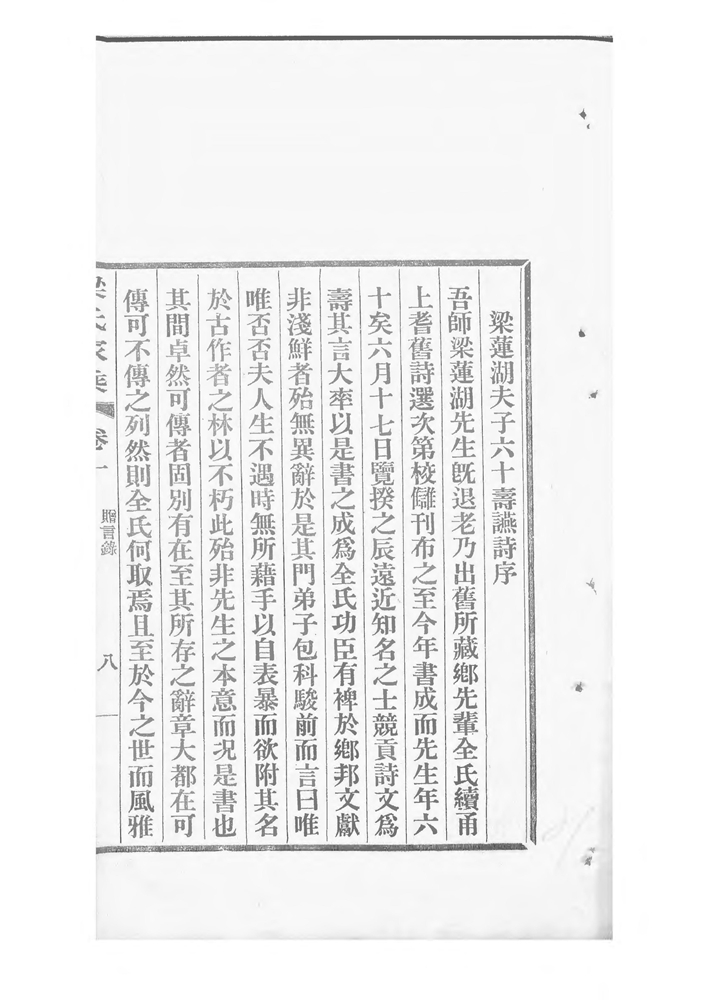 梁蓮湖夫子六十壽讌詩序
吾師梁蓮湖先生旣退老乃出舊所藏鄕先輩全氏續甬
上耆舊詩選次第校讎刊布之至今年書成而先生年六
十矣六月十七日覽揆之辰遠近知名之士競貢詩文爲
壽其言大率以是書之成爲全氏功臣有裨於鄕邦文獻
非淺鮮者殆無異辭於是其門弟子包科駿前而言曰唯
唯否否夫人生不遇時無所藉手以自表暴而欲附其名
於古作者之林以不朽此殆非先生之本意而况是書也
其間卓然可傳者固別有在至其所存之辭章大都在可
傳可不傳之列然則全氏何取焉且至於今之世而風雅
梁氏家乘 卷一 贈言錄 八